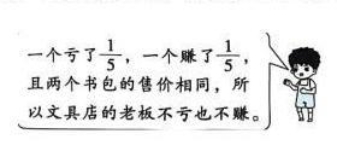 一个亏了1/5，一个赚了1/5，
且两个书包的售价相同，所
以文具店的老板不亏也不赚。